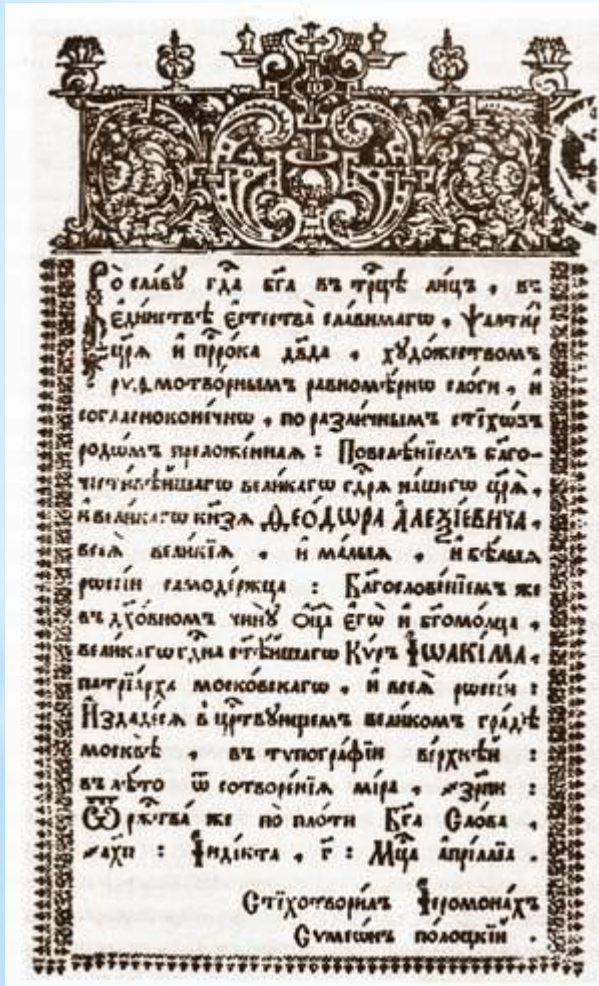 Во славу гдⷭ҇а бг҃а въ трⷪ҇цѣ ли́цъ , въ
є҆ди́нствѣ є҆стества̀ сла́вимагѡ , Ѱалти́рь
цр҃ѧ̀ и҆ прⷪ҇ро́ка дв҃да , худо́жествомъ
рѵѳмотво́рнымъ равномѣ́рнѡ сло́ги , и҆
согласноконе́чнѡ , по разли́чнымъ стїхѡ́въ
родѡ́мъ преложе́ннаѧ : Повелѣ́нїемъ бл҃го-
чести́вѣйшагѡ вели́кагѡ гдⷭ҇рѧ на́шегѡ цр҃ѧ̀ ,
и҆ вели́кагѡ кн҃зѧ ѲЕО́ДѠРА А҆ЛЕѮІ́ЕВИЧА ,
всеѧ̀ вели́кїѧ , и҆ ма́лыѧ , и҆ бѣ́лыѧ
рѡссі́и самоде́ржца : Благослове́нїемъ же
въ дх҃о́вномъ чи́ну Ѻ҆ц҃а̀ є҆гѡ̀ и҆ бг҃омо́лца ,
вели́кагѡ гдⷭ҇на ст҃ѣ́йшагѡ Кѵ́ръ І҆ѠАКІ́МА ,
патрїа́рха моско́вскагѡ , и҆ всеѧ̀ рѡссі́и :
И҆здаде́сѧ в цр҃твующемъ вели́ком гра́дѣ
москвѣ̀ , въ тѵпогра́фїи ве́рхнѣй :
въ лѣ́то ѿ сотворе́нїѧ мі́ра , ҂зрп҃и :
Ѿ рж҇тва̀ же по пло́ти Бг҃а Сло́ва ,
҂ахп҃ : І҆ндїкта , г҃ : Мцⷭ҇а а҆прі́ллїа .
Стїхотвори́лъ І҆еромона́хъ
Сѵмеѡ́нъ по́лоцкїй .